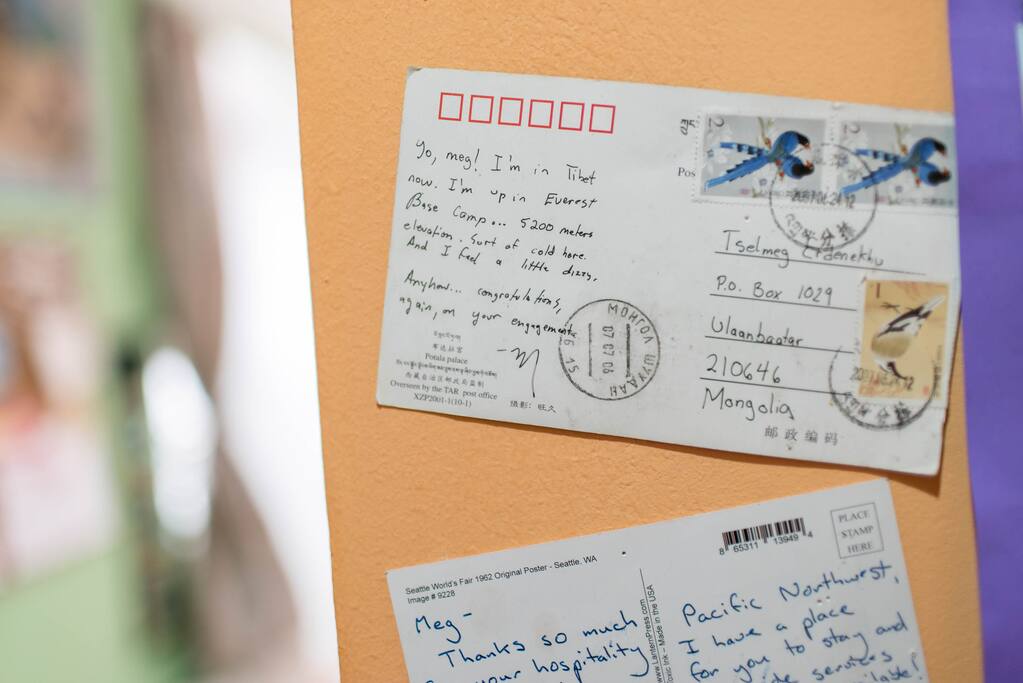 Yo, meg! I'm in Tibet
now. I'm up in Everest
Base Camp... 5200 meters
elevation. Sort of cold here.
And I feel a little dizzy.
Anyhow... congratulations,
again, on your engagement
Potala palace
西藏自治区邮政局监制
Overseen by the TAR post office
XZP2001-1(10-1)
摄影: 旺久
МОНГОЛ ШУУДАН
07 07 03
Pos
2
2
1
Tselmeg Erdenekhu
P.O. Box 1029
Ulaanbaatar
210646
Mongolia
邮政编码
Seattle World's Fair 1962 Original Poster - Seattle, WA
Image # 9228
8 65311 13949 4
PLACE
STAMP
HERE
www.LanternPress.com
Toxic Ink – Made in the USA
Meg-
Thanks so much
your hospitality
Pacific Northwest,
I have a place
for you to stay and
services